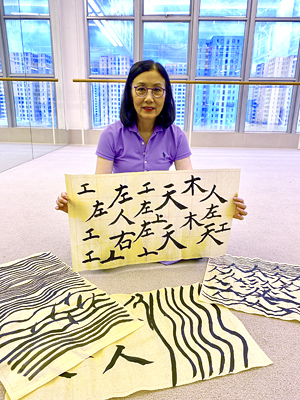 工左工天木人
左人左上木左
工右左天天工
工上上
人